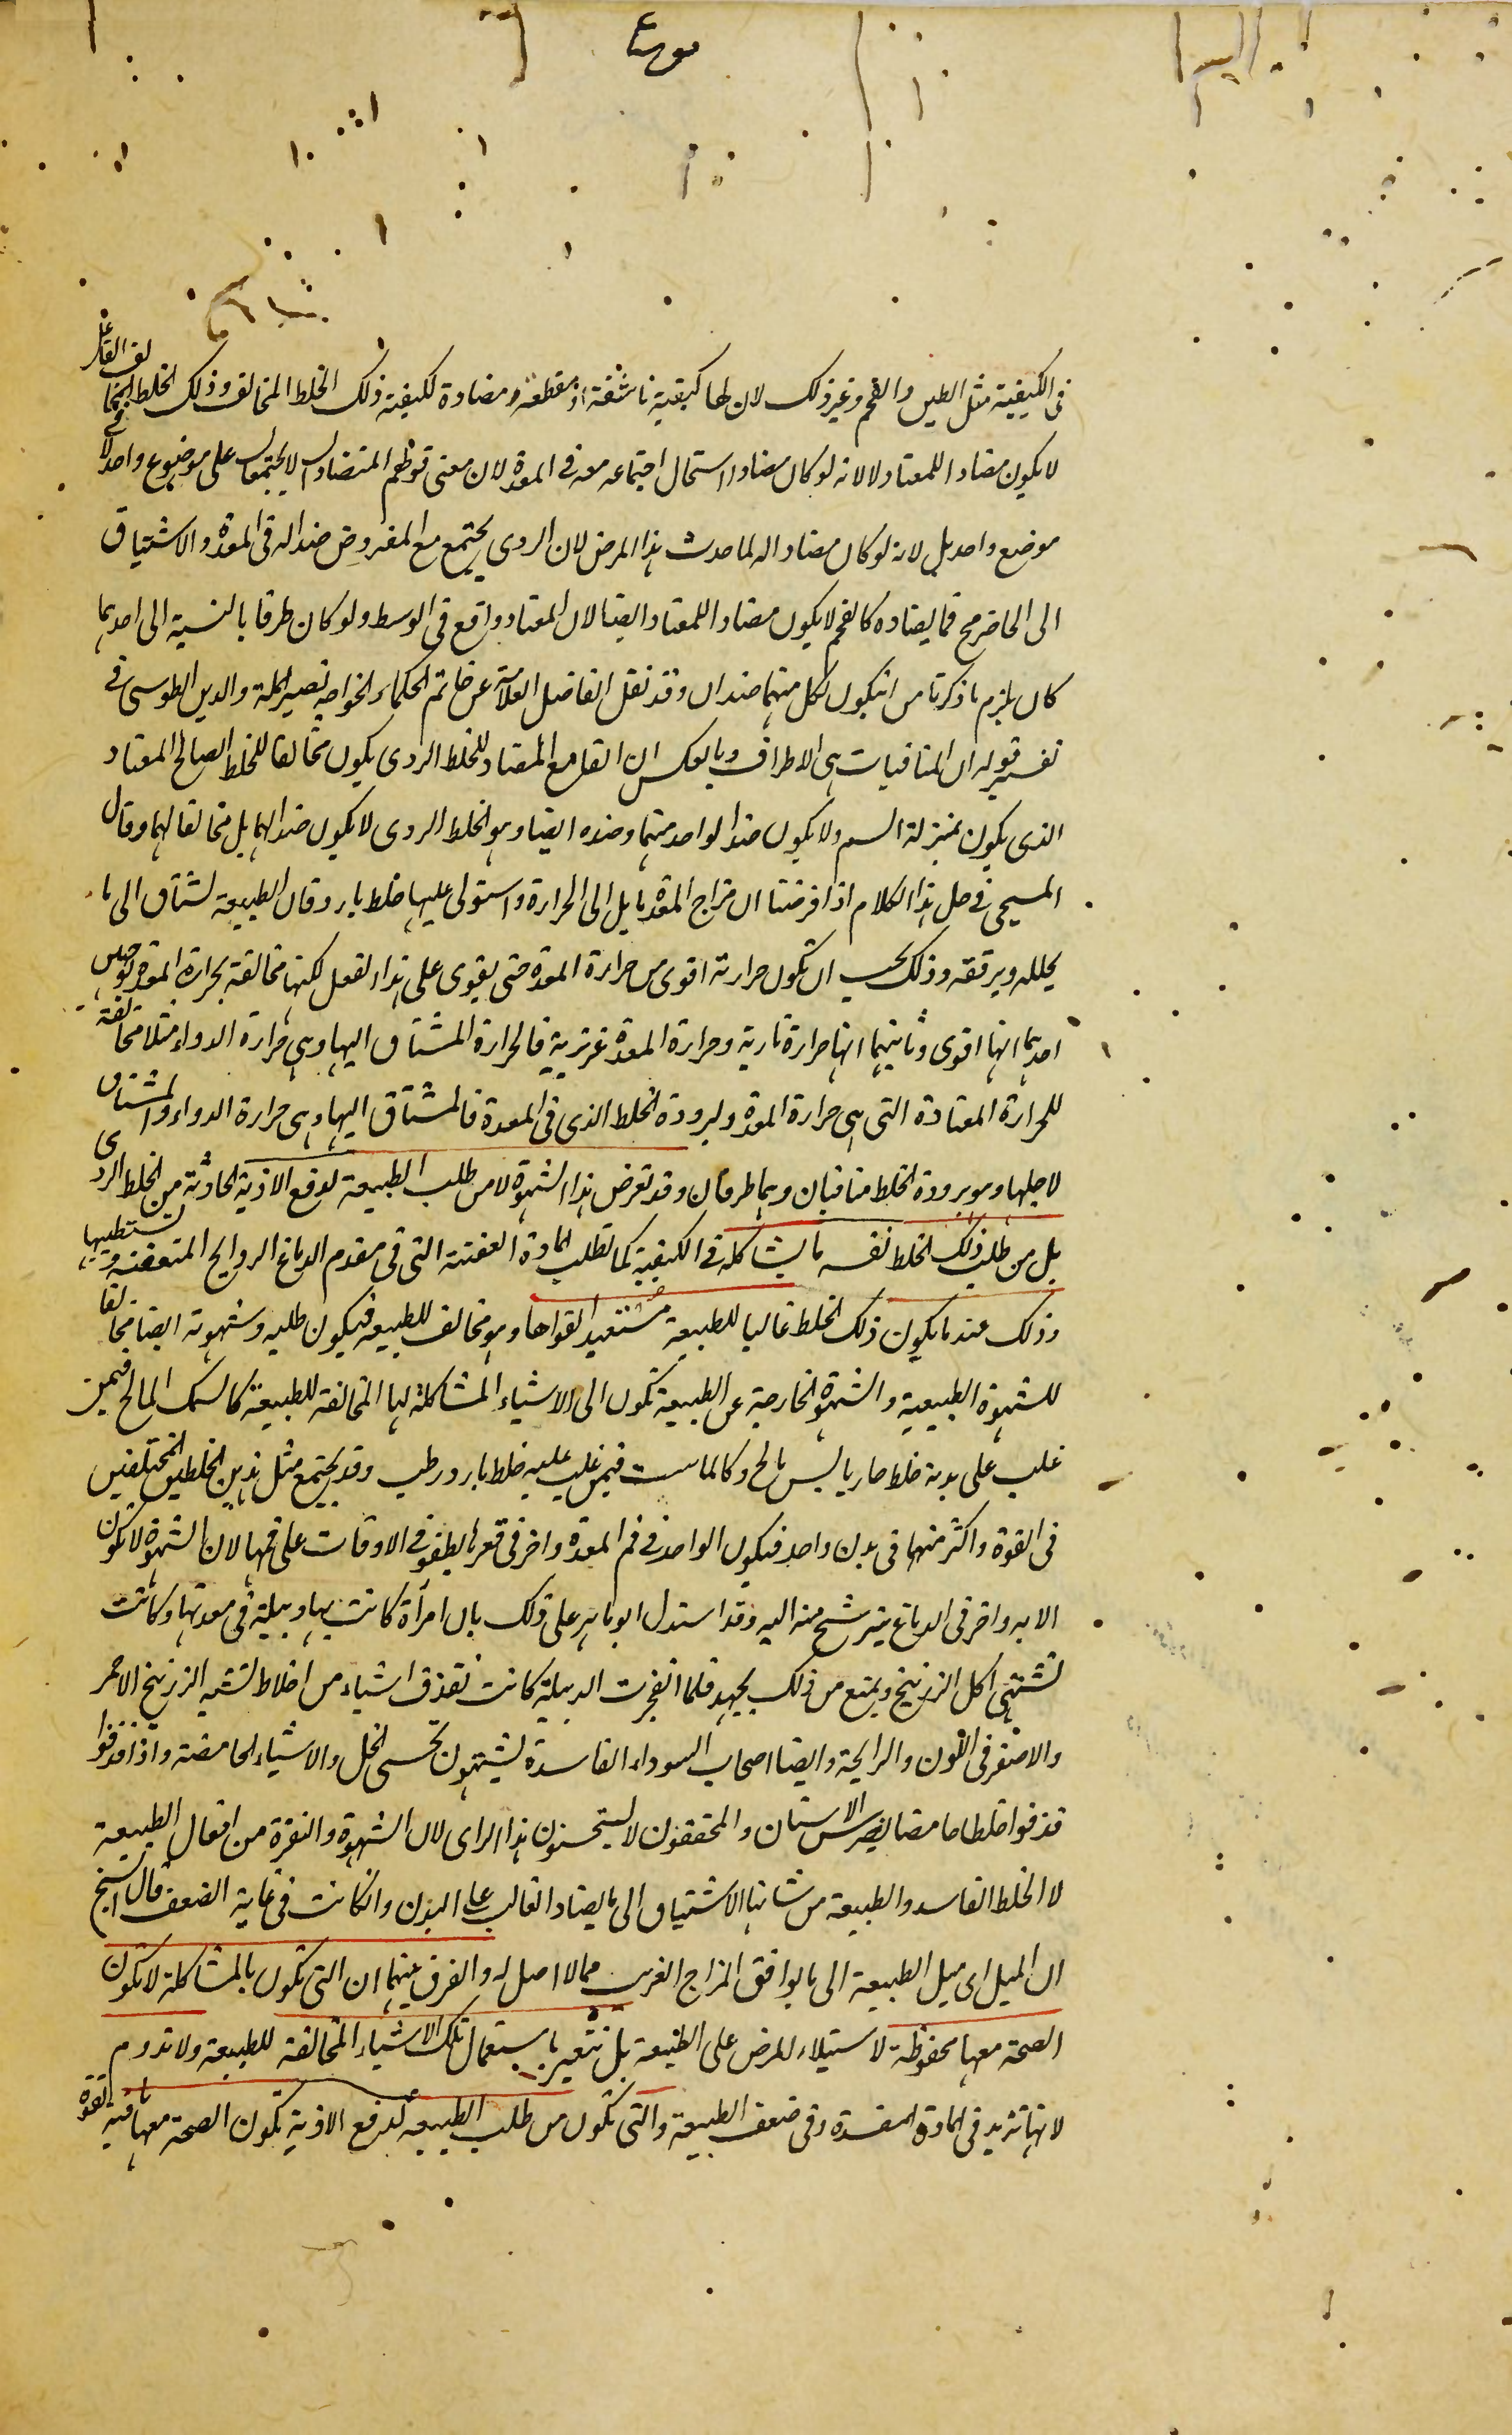 فى الكيفية مثل الطين والفحم وغير ذلك لان لها كيفية ناشفة او مقطعة ومضادة لكيفية ذلك الخلط المخالف وذلك الخلط المخالف الفاعل
لا يكون مضادا للمعتاد لا لانه لو كان مضادا استحال اجتماعه معه فى المعدة لان معنى قولهم المتضادان لا يجتمعان على موضوع واحد لا فى
موضع واحد بل لانه لو كان مضادا له لما حدث هذا المرض لان الردى يجتمع مع المفروض ضدا له فى المعدة والاشتياق
الى الحاضر مح فما يضاده كالفحم لا يكون مضادا للمعتاد ايضا لان المعتاد واقع فى الوسط ولو كان طرفا بالنسبة الى احدهما
كان يلزم ما ذكرنا من ان يكون لكل منهما ضدان وقد نقل الفاضل العلامة عن خاتم الحكماء الخواجه نصير الملة والدين الطوسى فى
تفسير قوله ان المنافيات هى الاطراف وبالعكس ان القامع المضاد للخلط الردى يكون مخالفا للخلط الصالح المعتاد
الذى يكون بمنزلة السم ولا يكون ضدا لواحد منهما وضده ايضا وهو الخلط الردى لا يكون ضدا لهما بل مخالفا لهما وقال
المسيحى فى حل هذا الكلام اذا فرضنا ان مزاج المعدة مايل الى الحرارة واستولى عليها خلط بارد فان الطبيعة تشتاق الى ما
يحلله ويرققه وذلك يجب ان تكون حرارته اقوى من حرارة المعدة حتى يقوى على هذا الفعل لكنها مخالفة بحرارة المعدة لوجهين
احدهما انها اقوى وثانيهما انها حرارة نارية وحرارة المعدة غريزية فالحرارة المشتاق اليها وهى حرارة الدواء مثلا مخالفة
للحرارة المعتادة التى هى حرارة المعدة ولبرودة الخلط الذى فى المعدة فالمشتاق اليها وهى حرارة الدواء والمشتاق
لاجلها وهو برودة الخلط منافيان وهما طرفان وقد تعرض هذا الشهوة لا من طلب الطبيعة لدفع الاذية الحادثة من الخلط الردى
بل من طلب ذلك الخلط نفسه ما يشاكله فى الكيفية كما تطلب المادة العفنة التى فى مقدم الدماغ الروايح المتعفنة ويستطيبها
وذلك عند ما يكون ذلك الخلط غالبا للطبيعة مستعبدا لقواها وهو مخالف للطبيعة فيكون طلبه وشهوته ايضا مخالفا
للشهوة الطبيعية والشهوة الخارجة عن الطبيعة تكون الى الاشياء المشاكلة لها المخالفة للطبيعة كالسمك المالح فيمن
غلب على بدنه خلط حار يابس مالح وكالماست فيمن غلب عليه خلط بارد رطب وقد يجتمع مثل هذين الخلطين المختلفين
فى القوة واكثر منهما فى بدن واحد فيكون الواحد فى فم المعدة واخر فى قعرها يطفو فى الاوقات على فمها لان الشهوة لا تكون
الا به واخر فى الدماغ يترشح منه اليه وقد استدل ابو ماهر على ذلك بان امرأة كانت بها دبيلة فى معدتها وكانت
تشتهى اكل الزرنيخ ويمنع من ذلك بجهد فلما انفجرت الدبيلة كانت تقذف اشياء من اخلاط تشبه الزرنيخ الاحمر
والاصفر فى اللون والرايحة وايضا اصحاب السوداء الفاسدة يشتهون تحسى الخل والاشياء الحامضة واذا قذفوا
قذفوا خلطا حامضا يضرس الاسنان والمحققون لا يستحسنون هذا الراى لان الشهوة والنفرة من افعال الطبيعة
لا الخلط الفاسد والطبيعة من شانها الاشتياق الى ما يضاد الغالب على البدن وان كانت فى غاية الضعف قال الشيخ
ان الميل اى ميل الطبيعة الى ما يوافق المزاج الغريب مما لا اصل له والفرق بينهما ان التى تكون بالمشاكلة لا تكون
الصحة معها محفوظة لاستيلاء المرض على الطبيعة بل تتغير باستعمال تلك الاشياء المخالفة للطبيعة ولا تدوم
لانها تزيد فى المادة المفسدة وفى ضعف الطبيعة والتى تكون من طلب الطبيعة لدفع الاذية تكون الصحة معها باقية لقوة